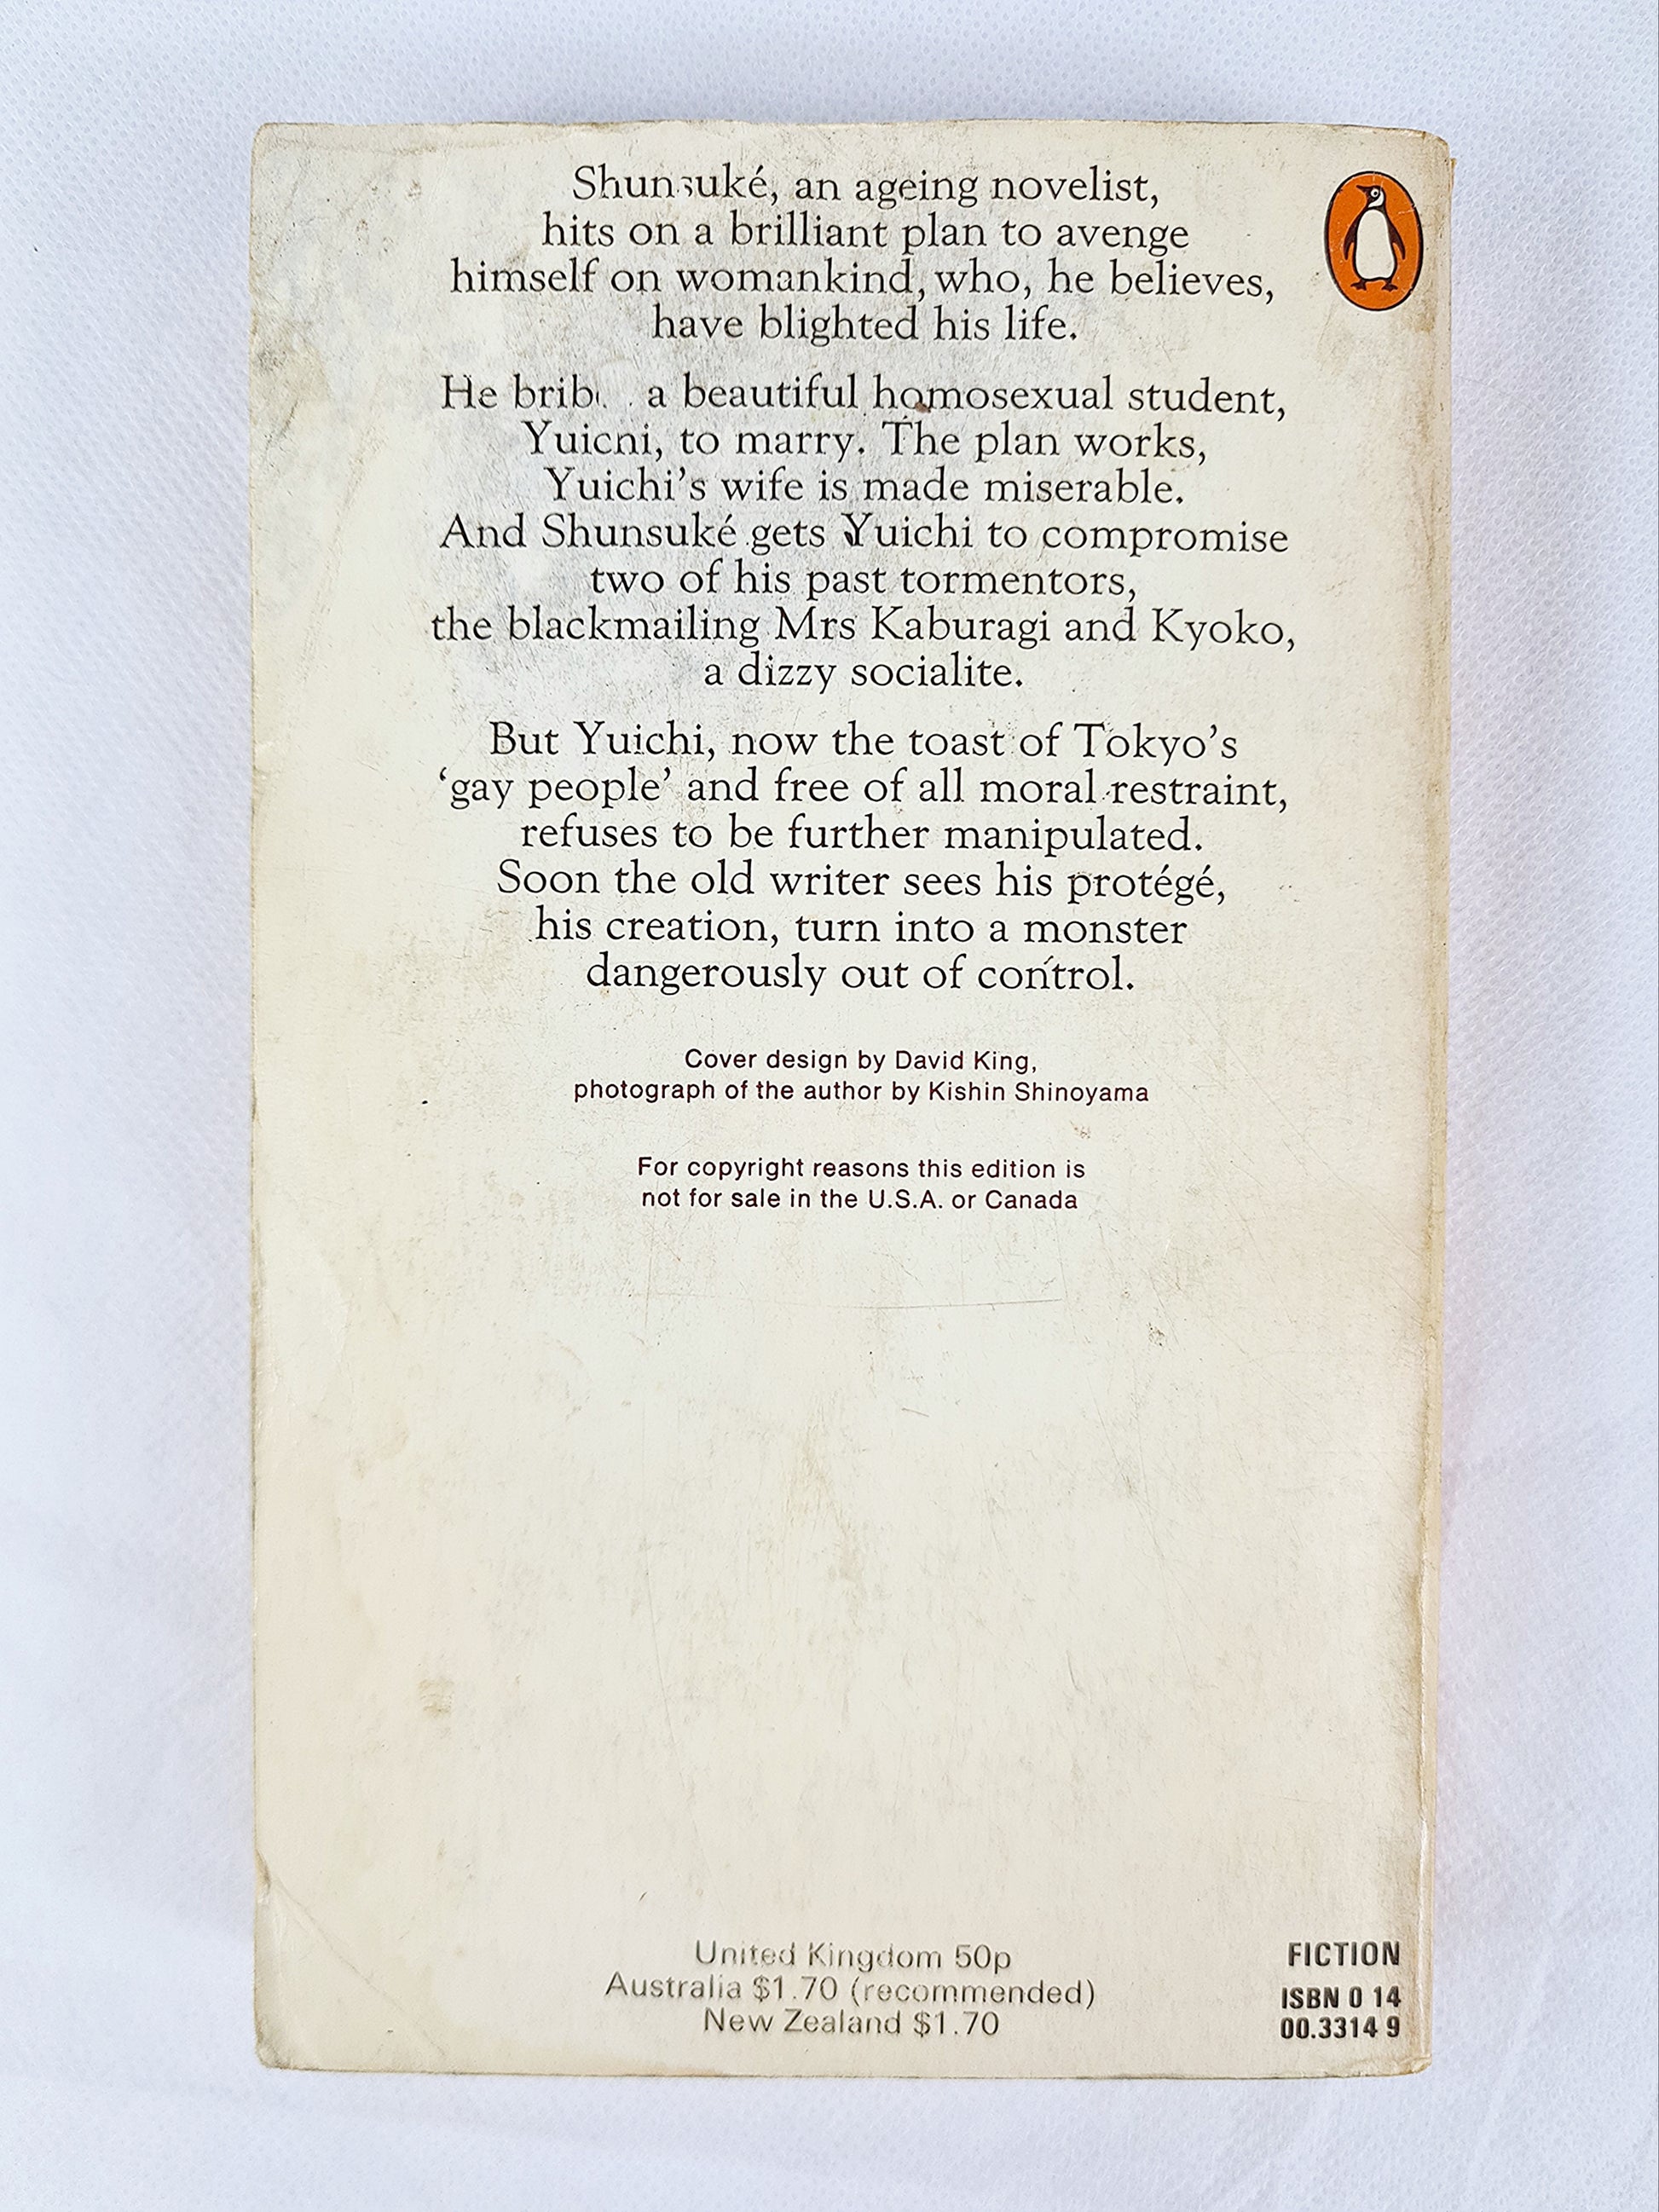 Shunsuké, an ageing novelist,
hits on a brilliant plan to avenge
himself on womankind, who, he believes,
have blighted his life.
He a beautiful homosexual student,
Yuichi, to marry. The plan works,
Yuichi’s wife is made miserable.
And Shunsuké gets Yuichi to compromise
two of his past tormentors,
the blackmailing Mrs Kaburagi and Kyoko,
a dizzy socialite.
But Yuichi, now the toast of Tokyo’s
‘gay people’ and free of all moral restraint,
refuses to be further manipulated.
Soon the old writer sees his protégé,
his creation, turn into a monster
dangerously out of control.
Cover design by David King,
photograph of the author by Kishin Shinoyama
For copyright reasons this edition is
not for sale in the U.S.A. or Canada
United Kingdom 50p
Australia $1.70 (recommended)
New Zealand $1.70
FICTION
ISBN 0 14
00.3314 9